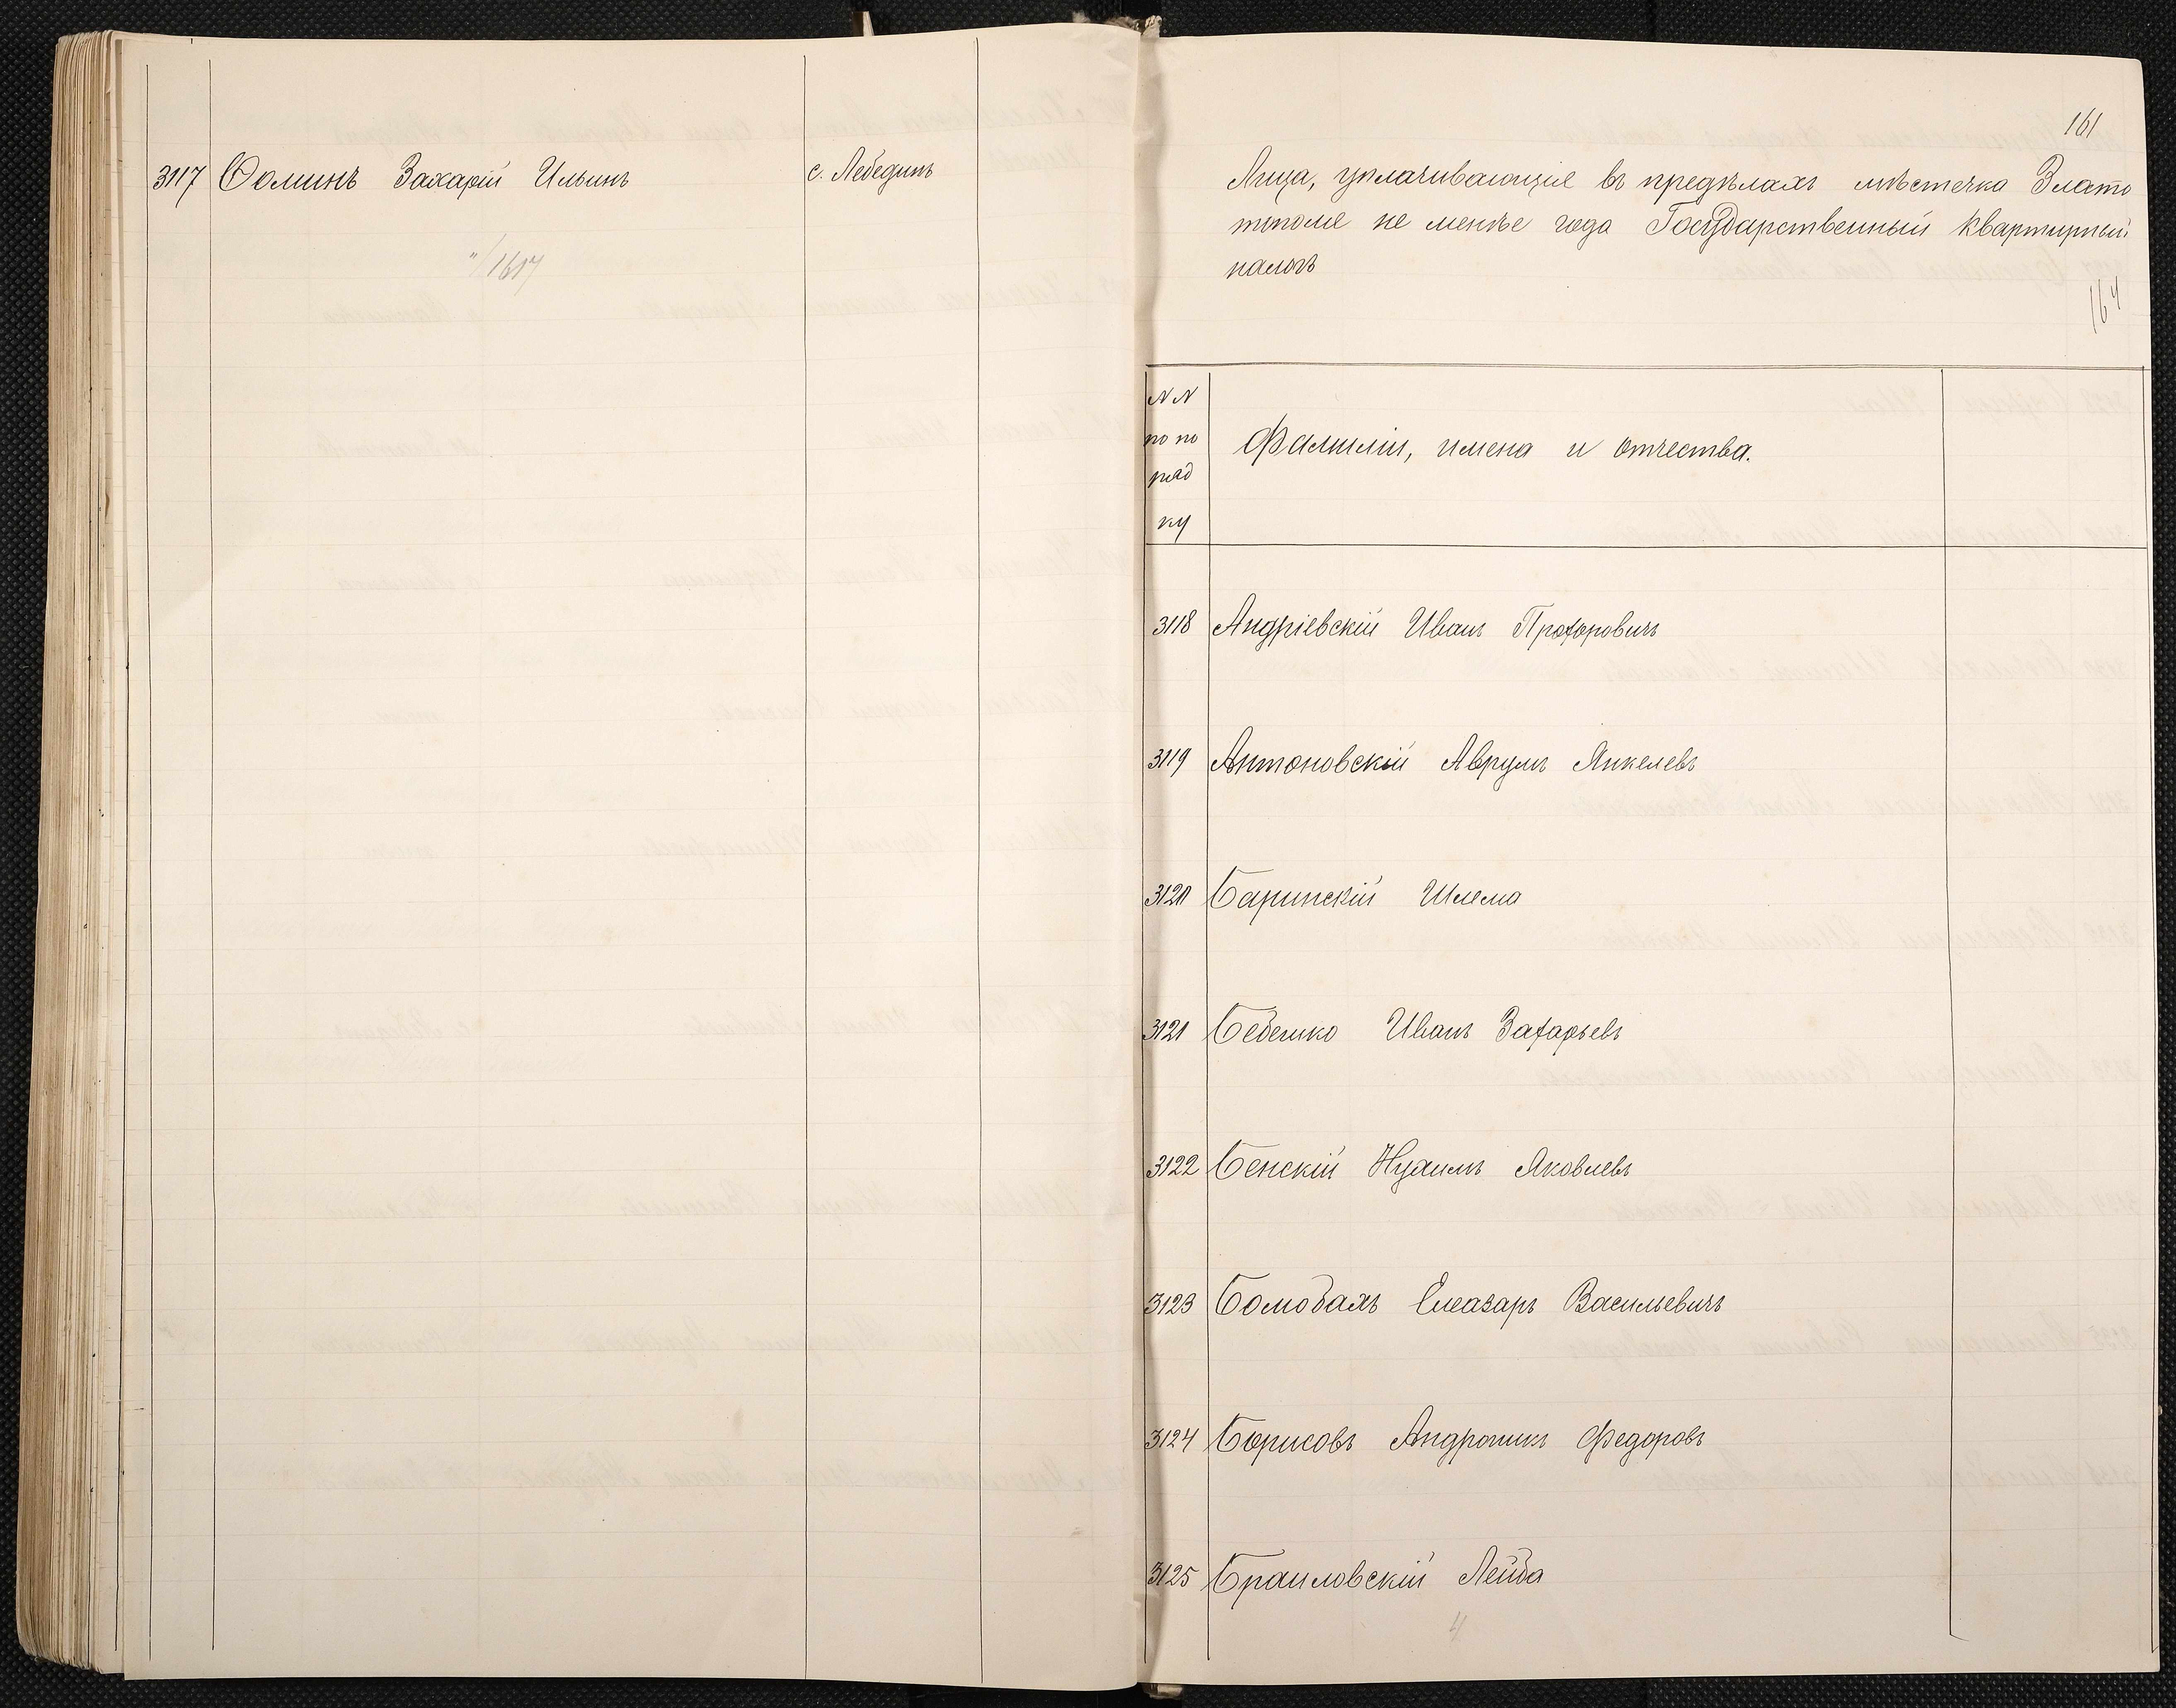 3117 Ѳоминъ Захарій Ильинъ с. Лебединъ
"/1617
161
Лица, уплачивающіе въ предѣлахъ мѣстечка Злато
тполе не менѣе года Государственный квартирный
налогъ
164
N N
по по
ряд
ку
Фамиліи, имена и отчества.
3118 Андріевскій Иванъ Прохоровичъ
3119 Антоновскій Аврумъ Янкелевъ
3120 Баринскій Шлема
3121 Бебешко Иванъ Захарьевъ
3122 Бенскій Нухимъ Яковлевъ
3123 Бомобахъ Елеазаръ Васильевичъ
3124 Борисовъ Андроникъ Федоровъ
3125 Браиловскій Лейба
4